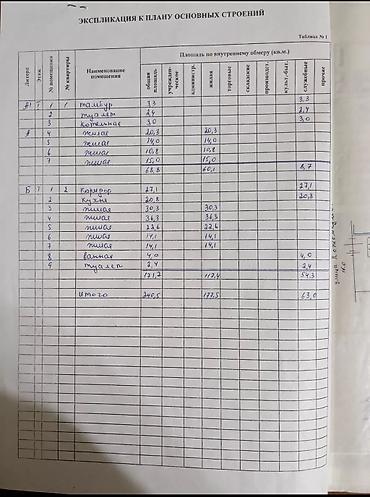 ЭКСПЛИКАЦИЯ К ПЛАНУ ОСНОВНЫХ СТРОЕНИЙ
Таблица № 1
Литера Этаж № помещения № квартиры Наименование помещения Площадь по внутреннему обмеру (кв.м.)
общая площадь учрежденческие администр. жилая торговые складские производст. культ.-быт. служебные прочие
А1 1 1 1 тамбур 3,3 3,3
2 туалет 2,4 2,4
3 котельная 3,0 3,0
А 4 жилая 20,3 20,3
5 жилая 14,0 14,0
6 жилая 10,8 10,8
7 жилая 15,0 15,0
68,8 60,1 8,7
Б 1 1 2 Коридор 27,1 27,1
2 Кухня 20,8 20,8
3 жилая 30,3 30,3
4 жилая 36,3 36,3
5 жилая 22,6 22,6
6 жилая 14,1 14,1
7 жилая 14,1 14,1
8 ванная 4,0 4,0
9 туалет 2,4 2,4
171,7 117,4 54,3
Итого 240,5 177,5 63,0
улица